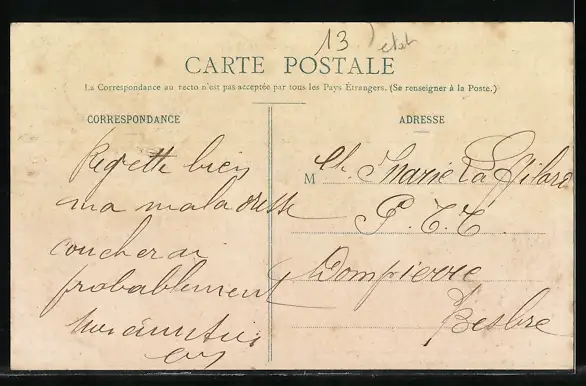 13
CARTE POSTALE
La Correspondance au recto n'est pas acceptée par tous les Pays Étrangers. (Se renseigner à la Poste.)
CORRESPONDANCE
ADRESSE
Regrette bien
ma maladresse
coucherai
probablement
M Ch. Marie
P. T. T.
Dompierre
s/ Besbre